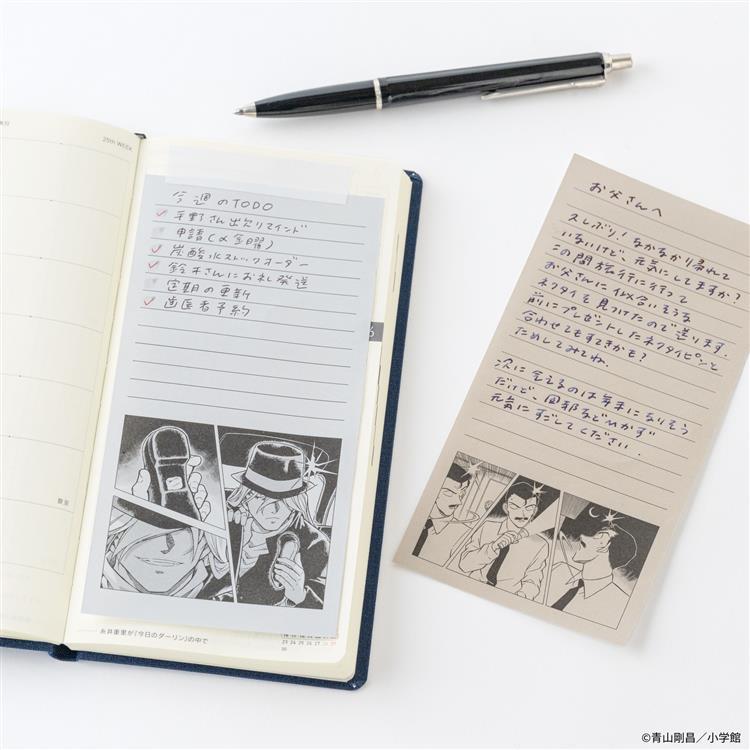 25th WEEK
今週のTODO
平野さん出欠リマインド
申請(〆金曜)
炭酸水ストックオーダー
鈴木さんにお礼発送
定期の更新
歯医者予約
糸井重里が『今日のダーリン』の中で
23 24 25 26 27 28 29
30
お父さんへ
久しぶり!なかなか帰れて
いないけど、元気にしてますか?
この間旅行に行って
お父さんに似合いそうな
ネクタイを見つけたので送ります。
前にプレゼントしたネクタイピンと
合わせてもすてきかも?
ためしてみてね。
次に会えるのは年末になりそう
だけど、風邪などひかず
元気にすごしてください。
©青山剛昌/小学館